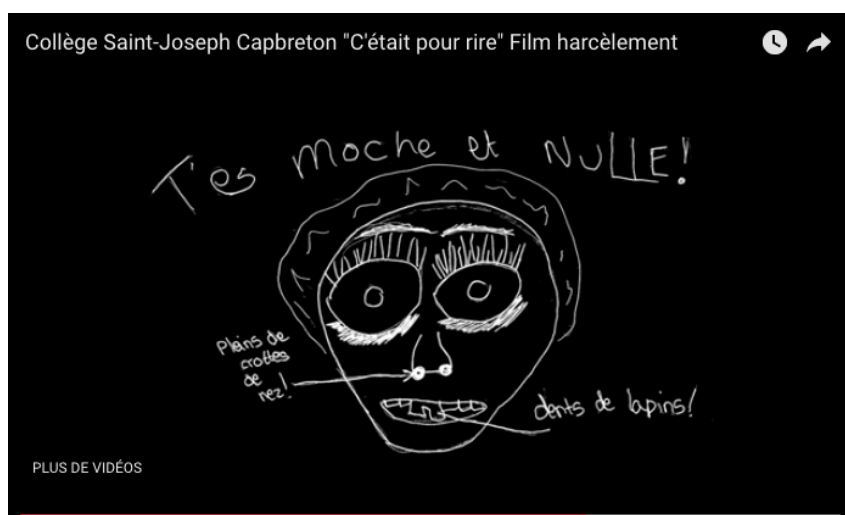 Collège Saint-Joseph Capbreton "C'était pour rire" Film harcèlement
T'es moche et NULLE!
Pleins de
crottes
de
nez!
dents de lapins!
PLUS DE VIDÉOS